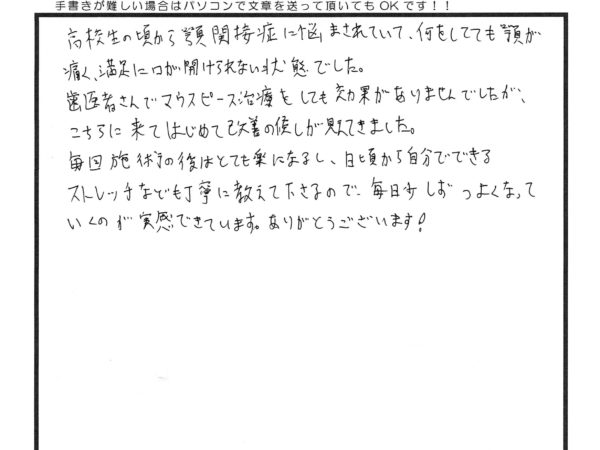 手書きが難しい場合はパソコンで文章を送って頂いてもOKです！！
高校生の頃から顎関接症に悩まされていて、何をしてても顎が
痛く、満足に口が開けられない状態でした。
歯医者さんでマウスピース治療をしても効果がありませんでしたが、
こちらに来てはじめて改善の候しが見えてきました。
毎回施術の後はとても楽になるし、日頃から自分でできる
ストレッチなども丁寧に教えて下さるので、毎日少しずつよくなって
いくのが実感できています。ありがとうございます!